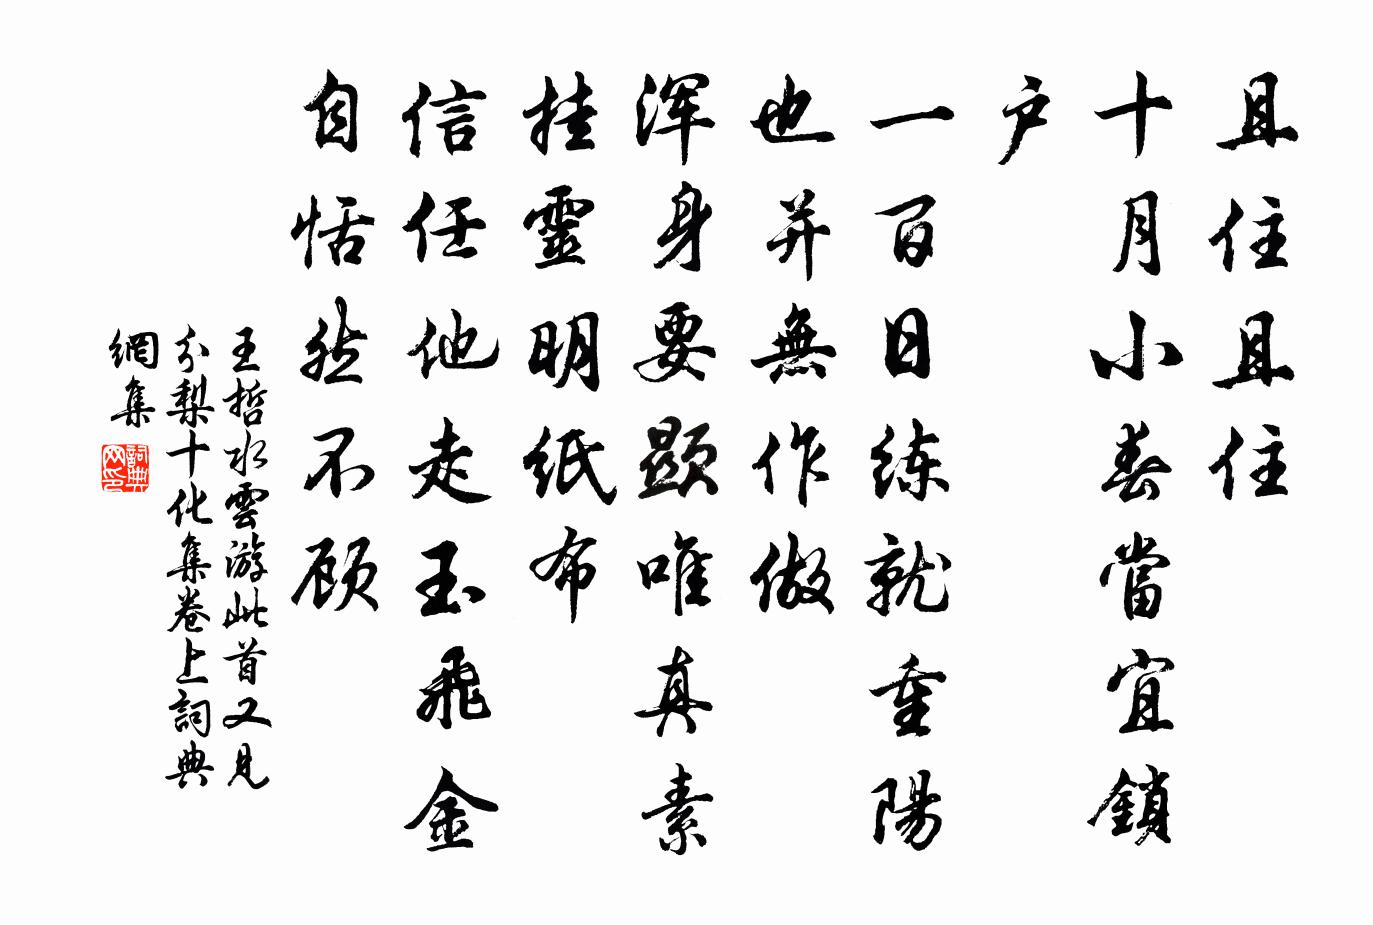 且住且住
十月小春當宜鎖
户
一百日练就重陽
也并無作做
浑身要顯唯真素
挂靈明纸布
信任他走玉飛金
自恬然不顾
王哲水雲游此首又見
分梨十化集卷上詞典
網集
詞典
网印